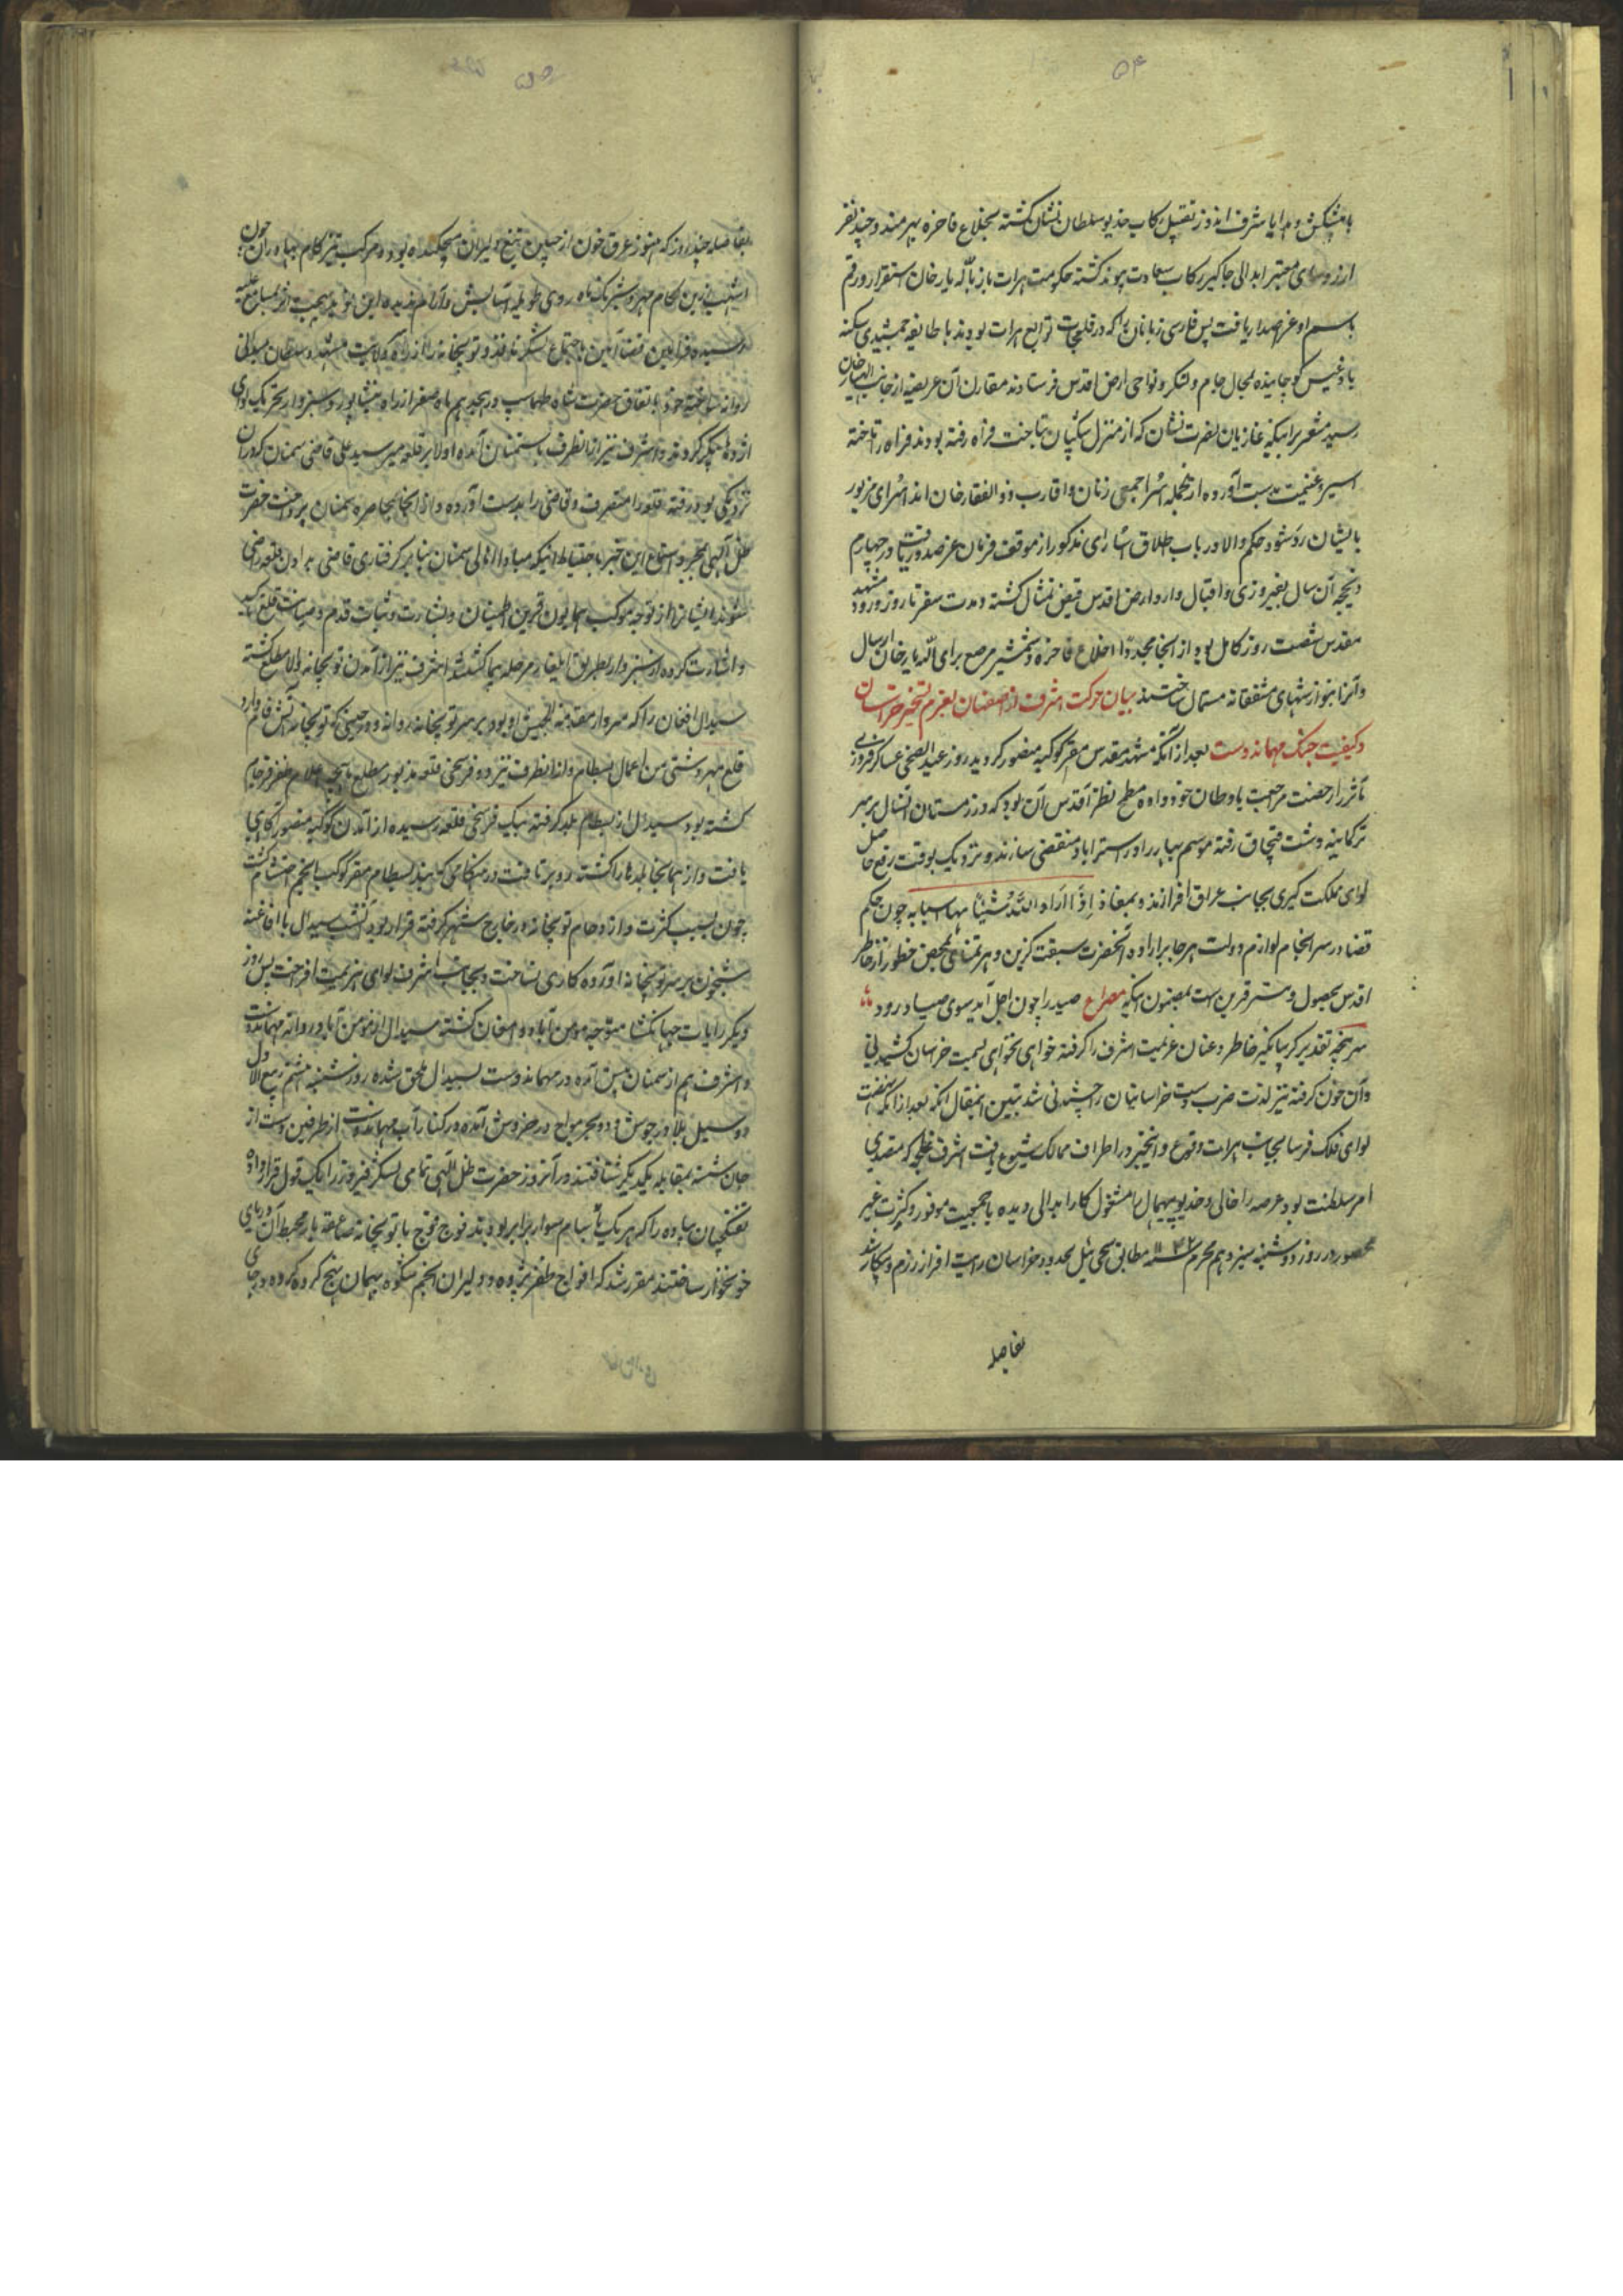 ۵۴
با پیشکش و هدایا شرف اندوز تقبیل رکاب خدیو سلطان نشان گشته بخلاع فاخره بهره‌مند و چند نفر
از روسای معتبر ابدالی جاگیر رکاب سعادت پیوند گشته حکومت هرات باز بالله یار خان استقرار و رقم
باسم او عز اصدار یافت پس فارسی زبانان را که در قلعجات توابع هرات بودند با طایفه جمشیدی سکنه
بادغیس کوچانیده بمحال جام و لنکر و نواحی ارض اقدس فرستادند مقارن آن عریضه از جانب الهیار خان
رسید مشعر بر اینکه غازیان نصرت نشان که از منزل سکیبان بتاخت فراه رفته بودند فراه را تاخته
اسیر و غنیمت بدست آورده از آنجمله اسرا جمعی زنان و اقارب ذوالفقار خان اند اسرای مزبور
بایشان رد شود حکم والا در باب اطلاق اسرای مذکور از موقف فرمان عز صدور یافت و در چهارم
ذیحجه آن سال بفیروزی و اقبال وارد ارض اقدس فیض تمثال گشته و مدت سفر تا روز ورود مشهد
مقدس شصت روز کامل بود از آنجا مجددا خلاع فاخره و شمشیر مرصع برای الله یار خان ارسال
و آنرا بنوازشهای مشفقانه مستمال ساختند بیان حرکت اشرف از اصفهان بعزم تسخیر خراسان
و کیفیت جنک مهماندوست بعد از آنکه مشهد مقدس مقر کوکبه منصور گردید روز عید الضحی عساکر فیروزی
تأثر را رخصت مراجعت باوطان خود داده مطمح نظر اقدس آن بود که در زمستان آنسال بر سر
ترکمانیه دشت قبچاق رفته موسم بهار را در استراباد منقضی سازند و نزدیک بوقت رفع حاصل
لوای مملکت گیری بجانب عراق افرازند و بمفاد اِذَا اَرَادَ اللّٰهُ شَیْئًا هیا اسبابه چون حکم
قضا در سرانجام لوازم دولت هر جا بر اراده آنحضرت سبقت گزین و هر تمنای بمحض خطور از خاطر
اقدس بحصول و مسرت قرین است بمضمون اینکه مصراع صید را چون اجل آید سوی صیاد رود
سر پنجه تقدیر گریبانگیر خاطر و عنان عزیمت اشرف را گرفته خواهی نخواهی بسمت خراسان کشیدنی
و آن خون گرفته نیز لذت ضرب دست خراسانیان را چشیدنی شد تبیین اینمقال آنکه بعد از آنکه نهضت
لوای فلک فرسا بجانب هرات وقوع و اینخبر در اطراف ممالک شیوع یافت اشرف غلجه که متصدی
امر سلطنت بود عرصه را خالی و خدیو بیهمال را مشغول کار ابدالی دیده با جمعیت موفور و کثرت غیر
محصور در روز دوشنبه سیزدهم محرم ۱۱۴۲ مطابق تخاقوی ئیل بحدود خراسان رایت افراز رزم و پیکار شد
بفاصله
۵۵
بفاصله چند روز که هنوز عرق خون از جبین تیغ دلیران میچکیده بود و مرکب تیز کلام بهادران چون
اشهب زرین لکام مهر و شبرنک ماه روی طویله آسایش و آرام ندیده این نوید بهجت اثر بمسامع علیه
رسیده فرامین قضا آیین باجتماع لشکر نافذ و توپخانه را از راه ولایت مشهد و سلطان میدانی
روانه ساخته خود باتفاق حضرت شاه طهماسب در هیجدهم ماه صفر از راه نیشابور و سبزوار بتحریک لوای
اژدها پیکر کردند و اشرف نیز از آنطرف بسمنان آمده اولا بر قلعه میر سید علی قاضی سمنان که در آن
نزدیکی بود رفته قلعه را متصرف و قاضی را بدست آورده و از آنجا بمحاصره سمنان پرداخت حضرت
ظل اللهی بمجرد استماع این خبر باحتیاط اینکه مبادا اهالی سمنان بنا بر گرفتاری قاضی بدادن قلعه راضی
شوند ایشانرا از توجه موکب همایون قرین اطمینان و بشارت و ثبات قدم و صیانت قلعه تاکید
و اشارت کرده از سبزوار بطریق ایلغار مرحله پیما گشتند اشرف نیز از آمدن توپخانه والا مطلع گشته
سیدال افغان را که سردار مقدمة الجیش او بود بر سر توپخانه روانه و در حینی که توپخانه آتش فام وارد
قلعه مهر دشتی من اعمال بسطام و از آنطرف نیز دو فرسخی قلعه مذبور مطلع ماهچه اعلام ظفر فرجام
گشته بود سیدال از بسطام بلد گرفته بیک فرسخی قلعه رسیده از آمدن کوکبه منصور آگاهی
یافت و از همانجا بلدها را کشته رو بر تافت در هنگامی که بلد بسطام مقر کوکب انجم احتشام گشت
چون بسبب کثرت و ازدحام توپخانه در خارج شهر گرفته قرار بود آنشب سیدال با افاغنه
شبخون بر سر توپخانه آورده کاری نساخت و بجانب اشرف لوای هزیمت افراخت پس روز
دیگر رایات جهانگشا متوجه مومن آباد دامغان گشته سیدال از مومن آباد روانه مهماندوست
و اشرف هم از سمنان پیش آمده در مهماندوست بسیدال ملحق شده روز شنبه ششم ربیع الاول
دو سیل بلا در جوش و دو بحر مواج در خروش آمده در کنار آب مهماندوست از طرفین دست از
جان شسته بمقابله یکدیگر شتافتند در آنروز حضرت ظل اللهی تمامی لشکر فیروز را یک قول قرار داده
تفنگچیان پیاده را که هر یک با سام سوار برابر بودند فوج فوج با توپخانه صاعقه بار محیط آن دریای
خونخوار ساختند مقرر شد که افواج ظفر پژوه و دلیران انجم شکوه پیمان سنج کرده کرده و جای